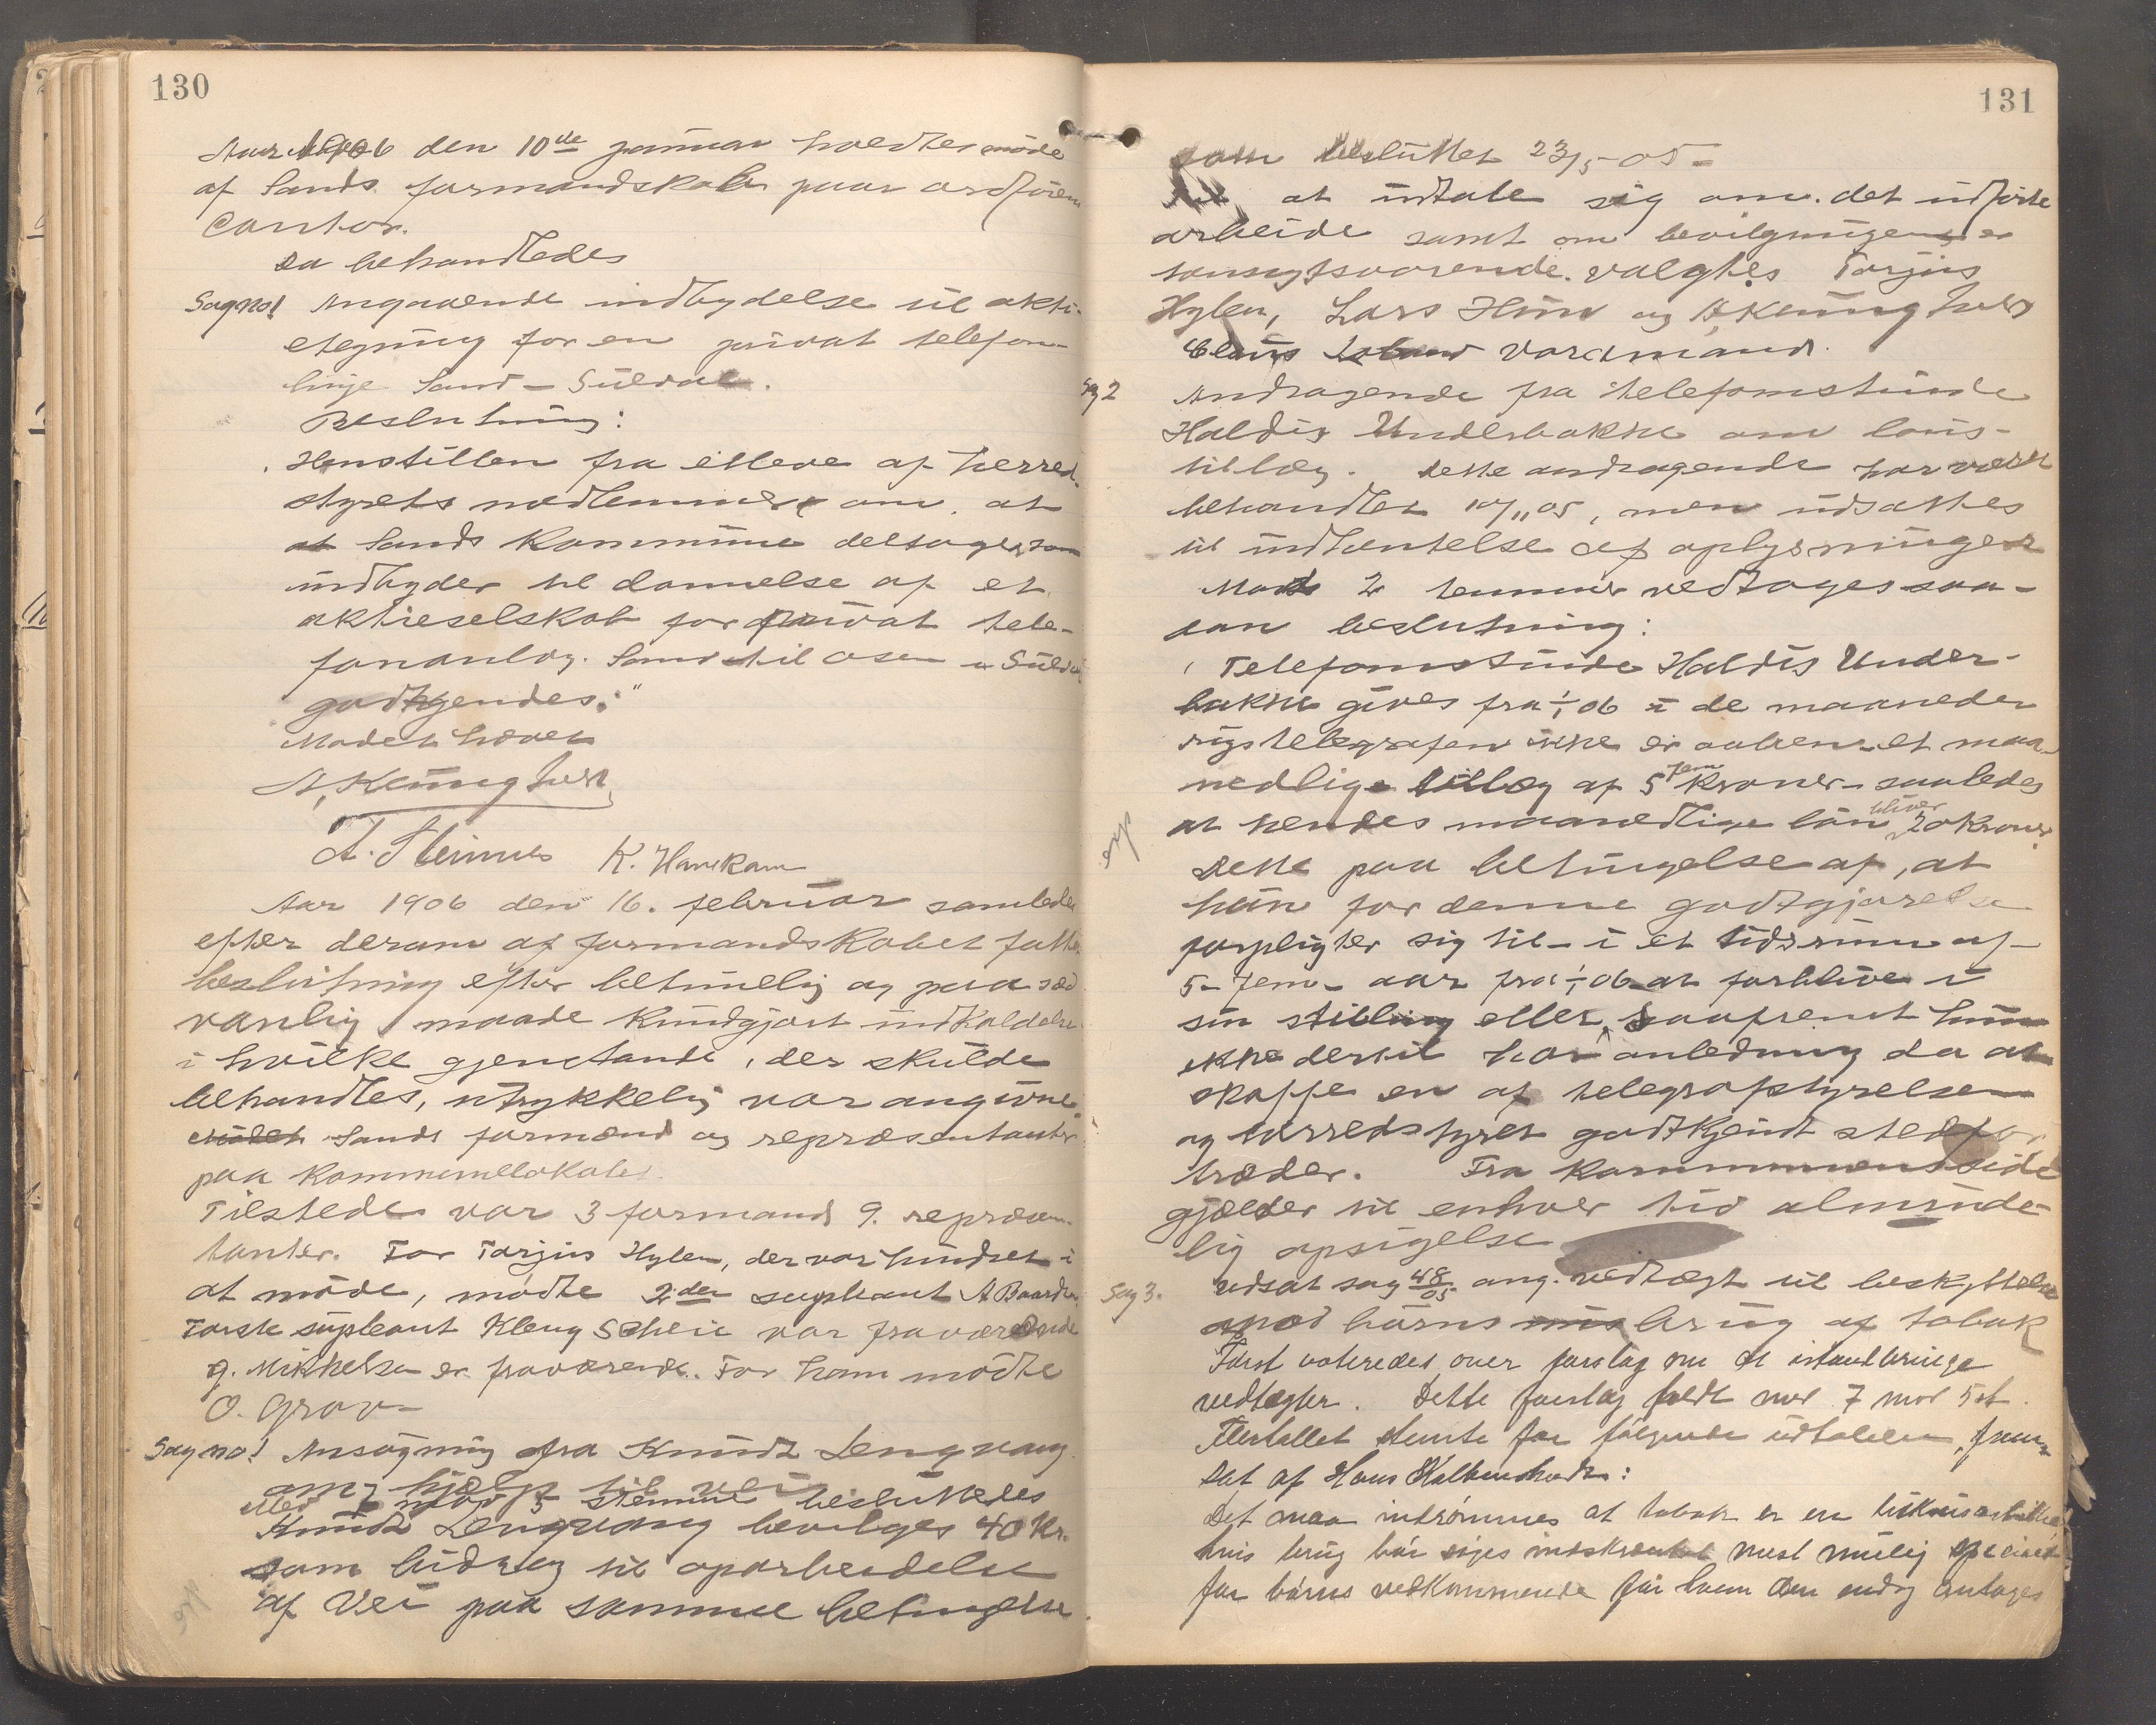 130
Aar 1906 den 10de januar holdtes møde
af Sands formandskab paa ordføren
contor.
Da behandledes
Sag no 1 Angaaende indbydelse til akti-
etegning for en privat telefon-
linje Sand - Suldal.
Beslutning:
Henstillen fra elleve af herred-
styrets medlemmer om at
at Sands kommune deltager som
indbyder til dannelse af et
aktieselskab for privat tele-
fonanlæg Sand til Osen i Suldal
godkjendes."
Mødet hævet
A. Kemnghus
A. Steinnes K. Hamrkam
Aar 1906 den 16. februar samledes
efter derom af formandskabet fattet
beslutning efter betimelig og paa sæd
vanlig maade kundgjort indkaldelse
i hvilke gjenstande, der skulde
behandles, utrykkelig var angivne,
mødet Sands formænd og repræsentanter
paa kommunelokalet.
Tilstede var 3 formænd 9. repræsen-
tanter. For Torjus Hylen, der var hindret i
at møde, mødte 2den supleant A Baardsen
Første supleant Kleng Scheie var fraværende
G. Mikkelsen er fraværende. For ham mødte
O. Grov -
Sag no 1 Ansøgning fra Knudt Lengvang
om hjælp til vei
Med 7 mod 5 stemmer besluttedes
Knudt Lengvang bevilges 40 Kr.
som bidrag til oparbeidelse
af Vei paa samme betingelse
131
som besluttet 23/5-05-
Til at udtale sig om det udførte
arbeide samt om bevilgningen er
hensigtsvarende valgtes Torjus
Hylen, Lars Hiim og A. Kemnghus
Claus varamand.
Sag 2 Andragende fra telefonistinde
Haldis Underbakke om løns-
tillæg. Dette andragende har været
behandlet 10/11 05, men udsattes
til indhentelse af oplysninger
Mod 2 stemmer vedtoges saa-
dan beslutning:
Telefonistinde Haldis Under-
bakke gives fra 1/1 06 i de maaneder
rigstelegrafen ikke er aaben et maa-
nedlige tillæg af 5 fem kroner - saaledes
at hendes maanedlige løn bliver 20 Kroner.
Dette paa betingelse af, at
hun for denne godtgjørelse
forpligter sig til - i et tidsrum af
5 - fem - aar fra 1/1 06 at forblive i
sin stilling eller, saafremt hun
ikke dertil har anledning da at
skaffe en af telegrafstyrelsen
og herredstyret godkjendt stedfor
træder. Fra kommunens side
gjælder til enhver tid alminde-
lig opsigelse
Sag 3. Udsat sag 48/05 ang. vedtægt til beskyttelse
mod børns misbrug af tobak
Først voteredes over forslag om at istandbringe
vedtægter. Dette forslag faldt med 7 mod 5 st.
Flertallet stemte for følgende udtalelse, frem-
sat af Hans Kolbenshadt:
Det maa indrømmes at tobak er en luksusartikkel
hvis brug bør søges indskrænket mest mulig specielt
for børns vedkommende for hvem den endog antages